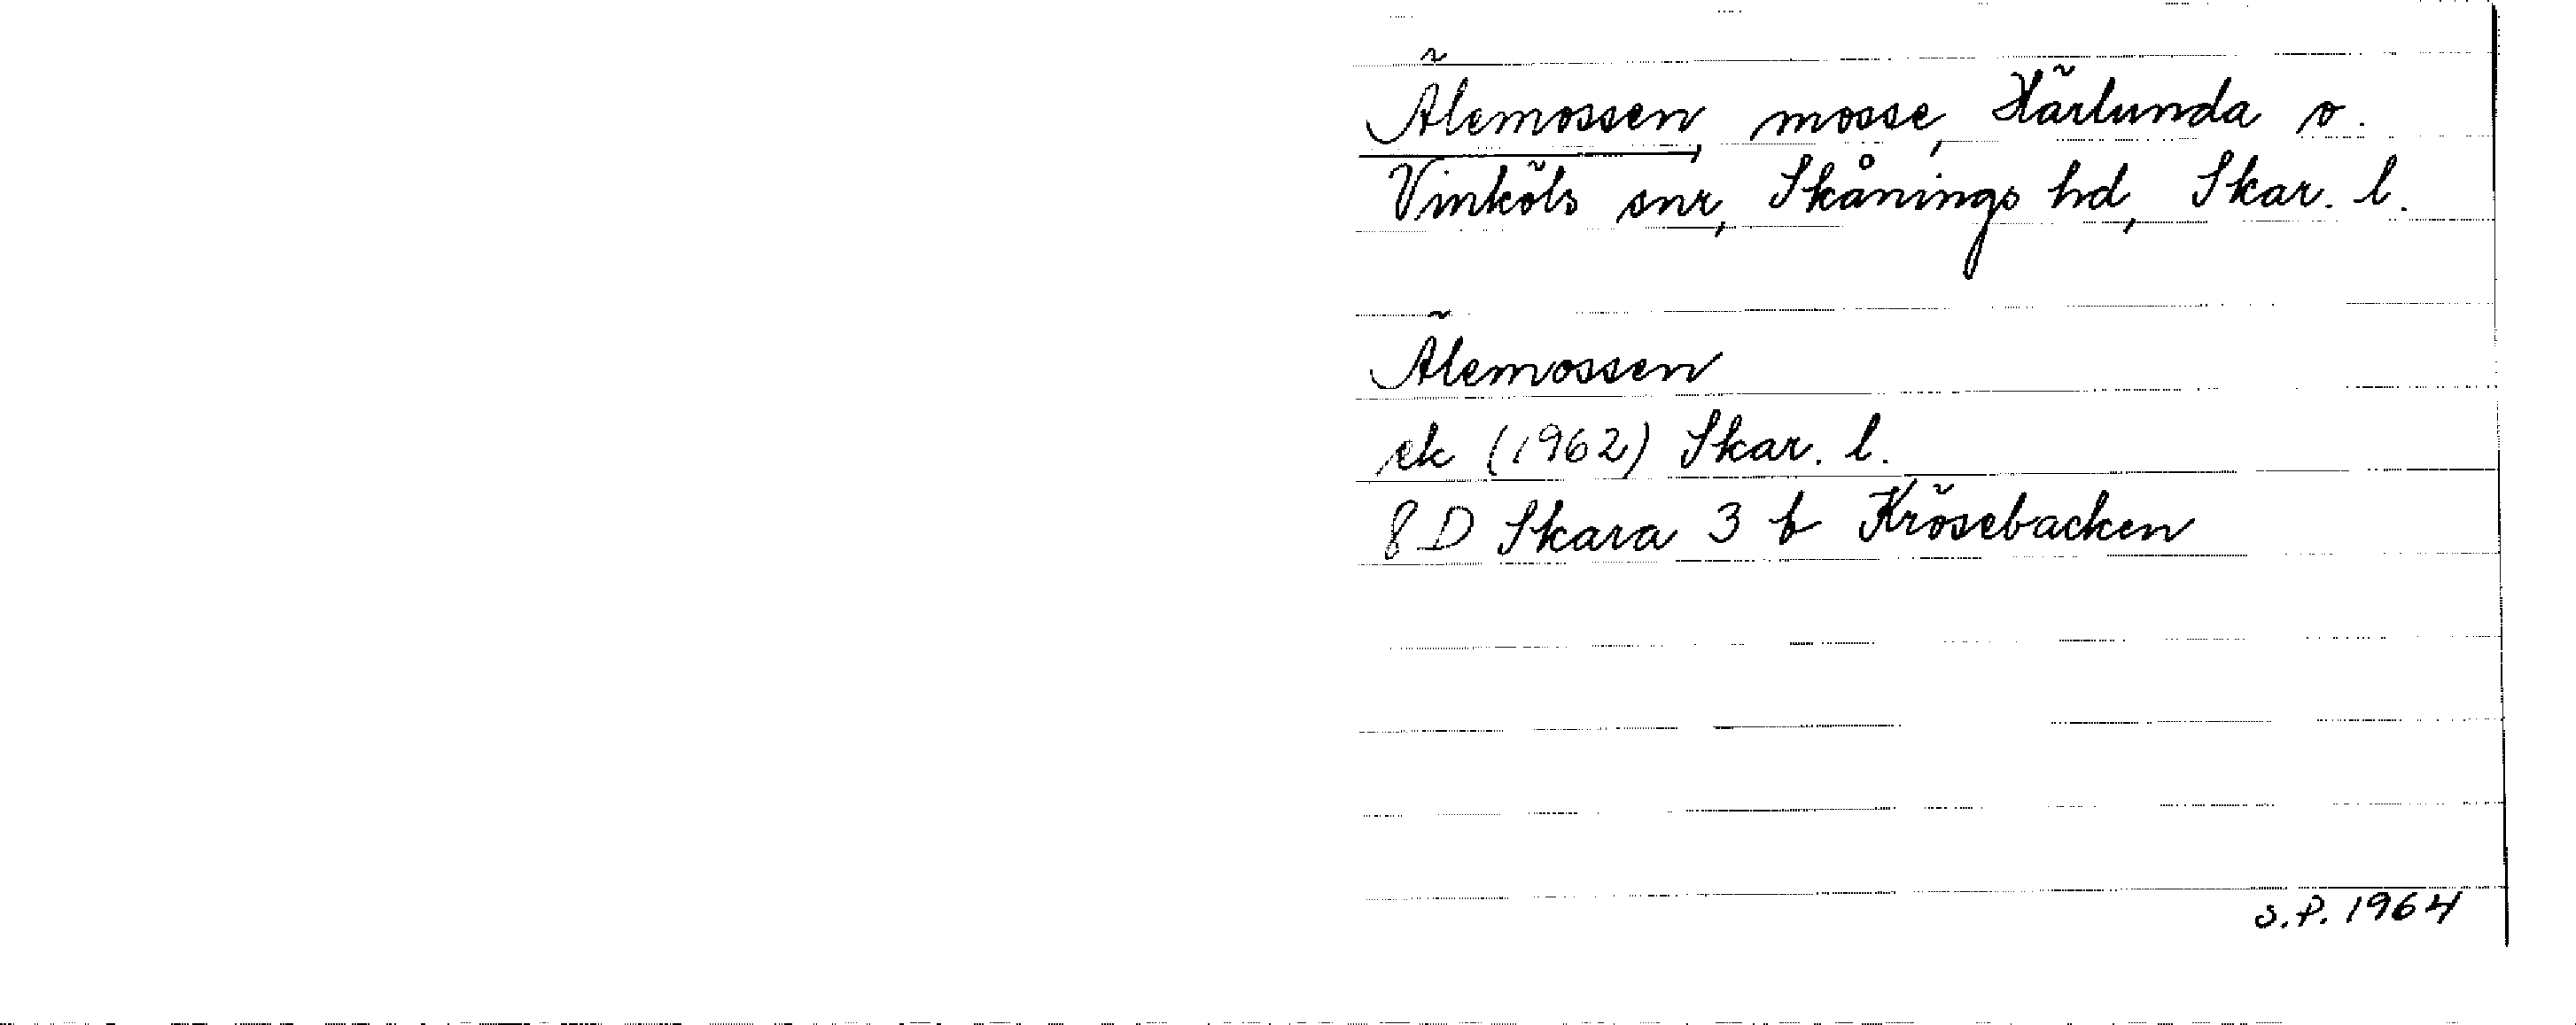 Älemossen, mosse, Härlunda o.
Vinköls snr, Skånings hd, Skar. l.
Älemossen
ek (1962) Skar. l.
8 D Skara 3 b Krösebacken
S.P. 1964